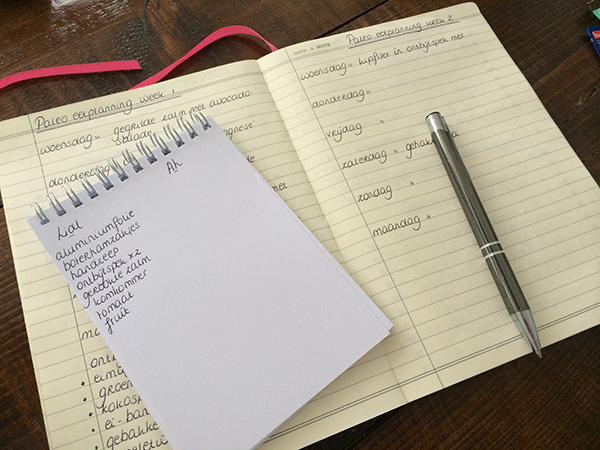 Paleo eetplanning week 1
woensdag " gegrilde zalm met avocado-
salade
donderdag
ognese'
met
ma
ont
• eimu
• groen
• kokosp
• ei-ban
• gebakke
Lidl
aluminiumfolie
boterhamzakjes
handzeep
ontbijtspek x2
gerookte zalm
komkommer
tomaat
fruit
Ah
DATE & NOTE
Paleo eetplanning week 2
woensdag " kipfilet in ontbijtspek met
donderdag "
vrijdag "
zaterdag " geha
zondag "
maandag "